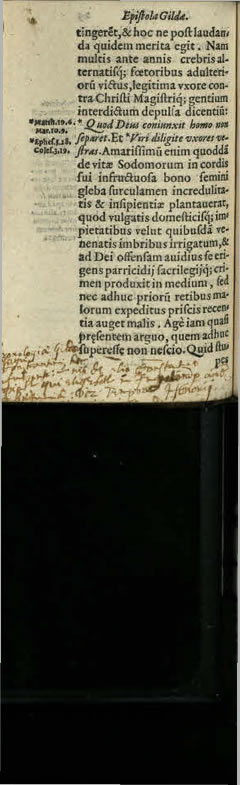 Epistola Gildæ.
tingerẽt, & hoc ne post laudan,
da quidem merita egit. Nam
multis ante annis crebris al-
ternatisq; fœtoribus adulteri-
orũ victus, legitima vxore con-
tra Christi Magistriq; gentium
interdictum depulsa dicentiũ:
*Math.19.6.
Mar.10.9.
* Quod Deus coniunxit homo non
*Ephes.5.28.
Coloss.3.19.
separet. Et *Viri diligite vxores ve-
stras. Amarissimũ enim quoddã
de vitæ Sodomorum in cordis
sui infructuosa bono semini
gleba surculamen incredulita-
tis & insipientiæ plantauerat,
quod vulgatis domesticisq; im-
pietatibus velut quibusdã ve-
nenatis imbribus irrigatum, &
ad Dei offensam auidius se eri-
gens parricidij sacrilegijq; cri-
men produxit in medium, sed
nec adhuc priorũ retibus ma-
lorum expeditus priscis recen-
tia auget malis. Age iam quasi
præsentem arguo, quem adhuc
superesse non nescio. Quid stu-
pes